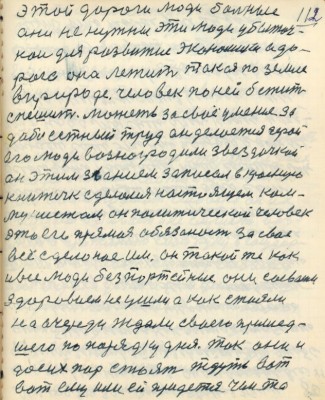 этой дороги люди больные 112
они не нужны эти люди убыточ-
ной для развитие экономики а до-
рога она лежит такая по земле
в природе. человек по ней бежит
спешит. может за своё умение за
добосетный труд он делается герой
его люди возногродили звездочкой
он этим званием записан в красную
книжичк сделался настоящем ком-
мунистом он политический человек
это его прямая обязаност за свое
всё сделоное им. он такой же как
и все люди безпортейные они своем
здоровием не ушли а как стояли
на очереди ждали своего пришед-
шего по порядку дня. так они и
до сих пор стоят ждуть вот
вот ему или ей придется чем то